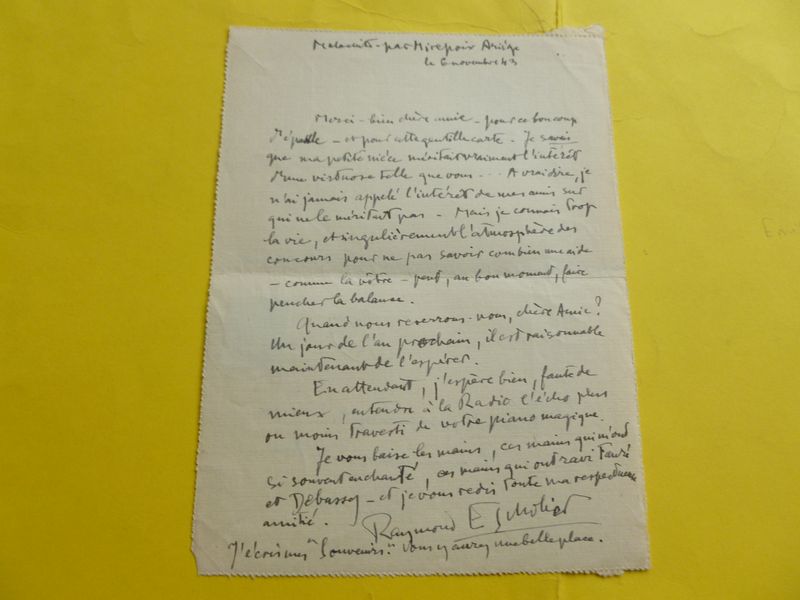 par Mirepoix Ariège
le 6 novembre 43
Merci - bien chère amie - pour ce bon coup
d'épaule - et pour cette gentille carte. Je savais
que ma petite nièce méritait vraiment l'intérêt
d'une virtuose telle que vous... A vrai dire, je
n'ai jamais appelé l'intérêt de mes amis sur
qui ne le méritait pas - Mais je connais trop
la vie, et singulièrement l'atmosphère des
concours pour ne pas savoir combien une aide
- comme la vôtre - peut, au bon moment, faire
pencher la balance.
Quand nous reverrons-nous, chère Amie?
Un jour de l'an prochain, il est raisonnable
maintenant de l'espérer.
En attendant, j'espère bien, faute de
mieux, entendre à la Radio l'écho plus
ou moins travesti de votre piano magique.
Je vous baise les mains, ces mains qui m'ont
si souvent enchanté, ces mains qui ont ravi Fauré
et Debussy - et je vous redis toute ma respectueuse
amitié.
Raymond Escholier
J'écris mes "Souvenirs." Vous y aurez une belle place.